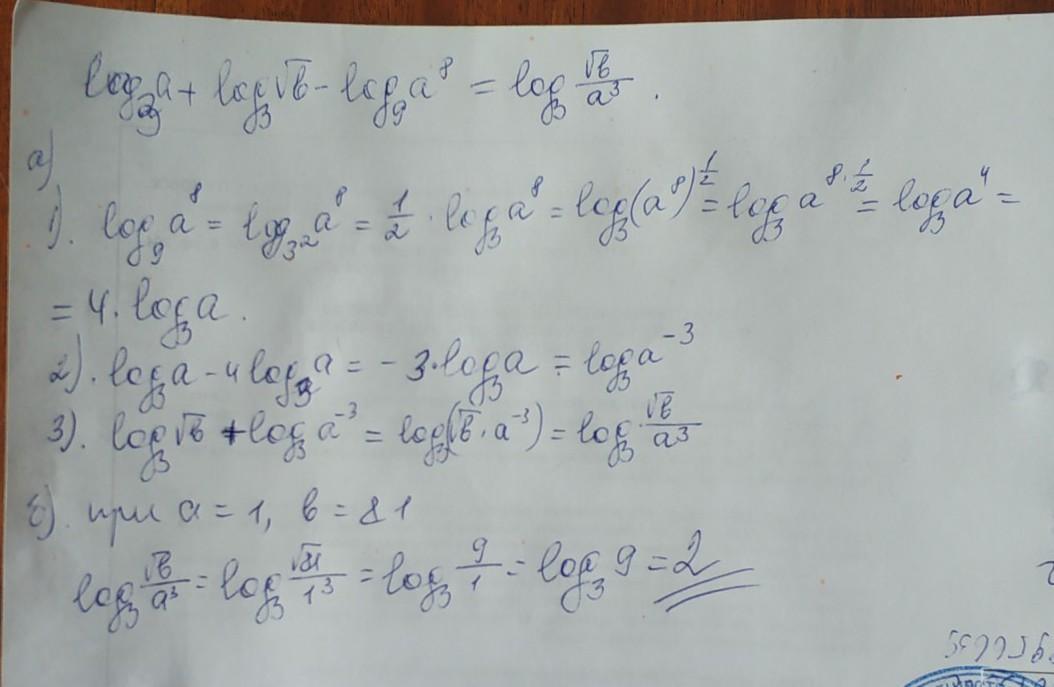 log₃a + log₃√b - log₉a⁸ = log₃ √b/a³.
а)
1). log₉a⁸ = log₃²a⁸ = 1/2 · log₃a⁸ = log₃(a⁸)^1/2 = log₃a^8·1/2 = log₃a⁴ =
= 4 · log₃a.
2). log₃a - 4log₃a = -3·log₃a = log₃a⁻³
3). log₃√b + log₃a⁻³ = log₃(√b · a⁻³) = log₃ √b/a³
б). при a = 1, b = 81
log₃ √b/a³ = log₃ √81/1³ = log₃ 9/1 = log₃9 = 2